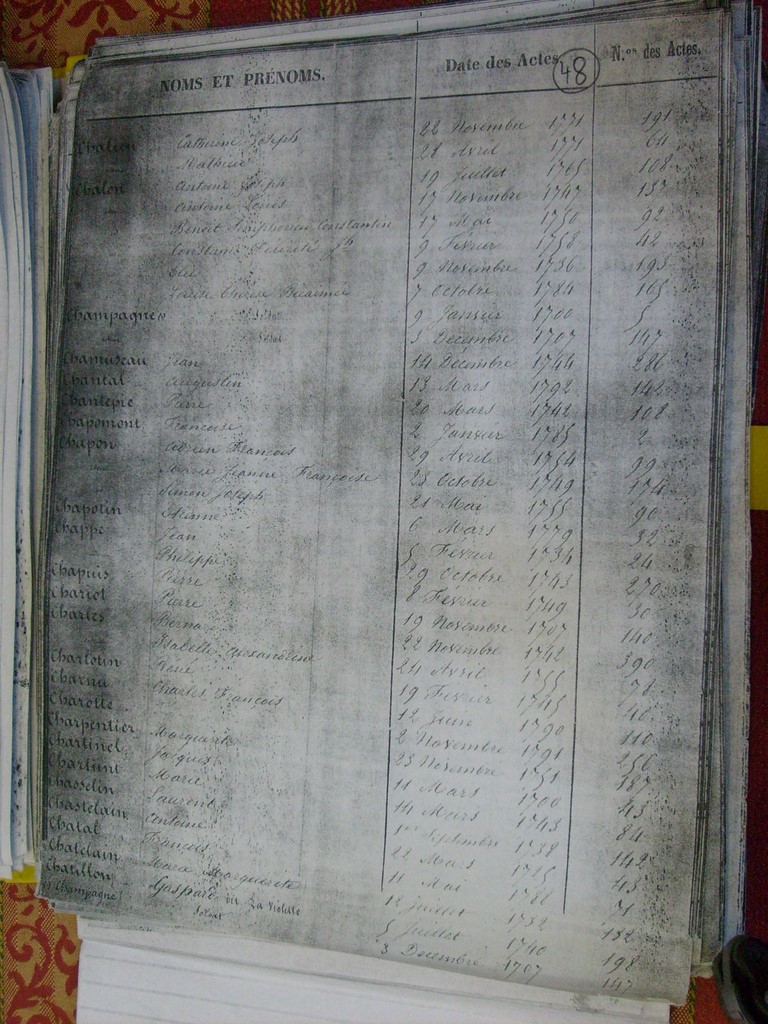 NOMS ET PRÉNOMS. Date des Actes N.os des Actes.
48
Catherine Joseph 22 Novembre 1771 191
Mathieu 28 Avril 1771 64
Chalon Antoine Joseph 19 Juillet 1765 108
Antoine Louis 17 Novembre 1747 137
Benoit Simphorien Constantin 17 Mai 1750 92
Constance Félicité 9 Fevrier 1758 42
9 Novembre 1736 193
Louise Thérèse 7 Octobre 1784 165
Champagne Soldat 9 Janvier 1700 5
Soldat 3 Decembre 1707 147
Chamuseau Jean 14 Décembre 1744 226
Chantal Augustin 13 Mars 1792 142
Chantepie Pierre 20 Mars 1742 108
Chapomont Francoise 2 Janvier 1785 2
Chapon François 29 Avril 1754 99
Marie Jeanne Françoise 28 Octobre 1749 174
Simon Joseph 21 Mai 1755 90
Chapotin Etienne 6 Mars 1779 32
Chappe Jean 5 Fevrier 1734 24
Philippe 29 Octobre 1743 270
Chapuis Pierre 8 Fevrier 1749 30
Chariot Pierre 19 Novembre 1707 140
Charles 22 Novembre 1742 390
Isabelle Alexandrine 24 Avril 1755 78
Charlotin René 19 Fevrier 1745 46
Charnu Charles François 12 Juin 1790 110
Charotte 2 Novembre 1791 256
Charpentier Marguerite 23 Novembre 1751 187
Chartinel Jacques 11 Mars 1700 43
Marie 14 Mars 1743 84
Chasselin Laurent 1er Septembre 1738 142
Chastelain Antoine 22 Mars 1715 43
Chatal François 11 Mai 71
Chatelain Marie Marguerite 12 Juillet 1732 132
Chatillon Gaspard dit La Violette 5 Juillet 1740 198
Champagne Soldat 3 Decembre 1707 147